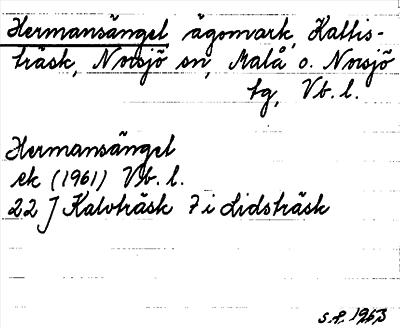 Hermansängel, ägomark, Kattis-
träsk, Norsjö sn, Malå o. Norsjö
tg, Vb. l.
Hermansängel
ek (1961) Vb. l.
22 J Kalvträsk 7 i Lidsträsk
S.P. 1963